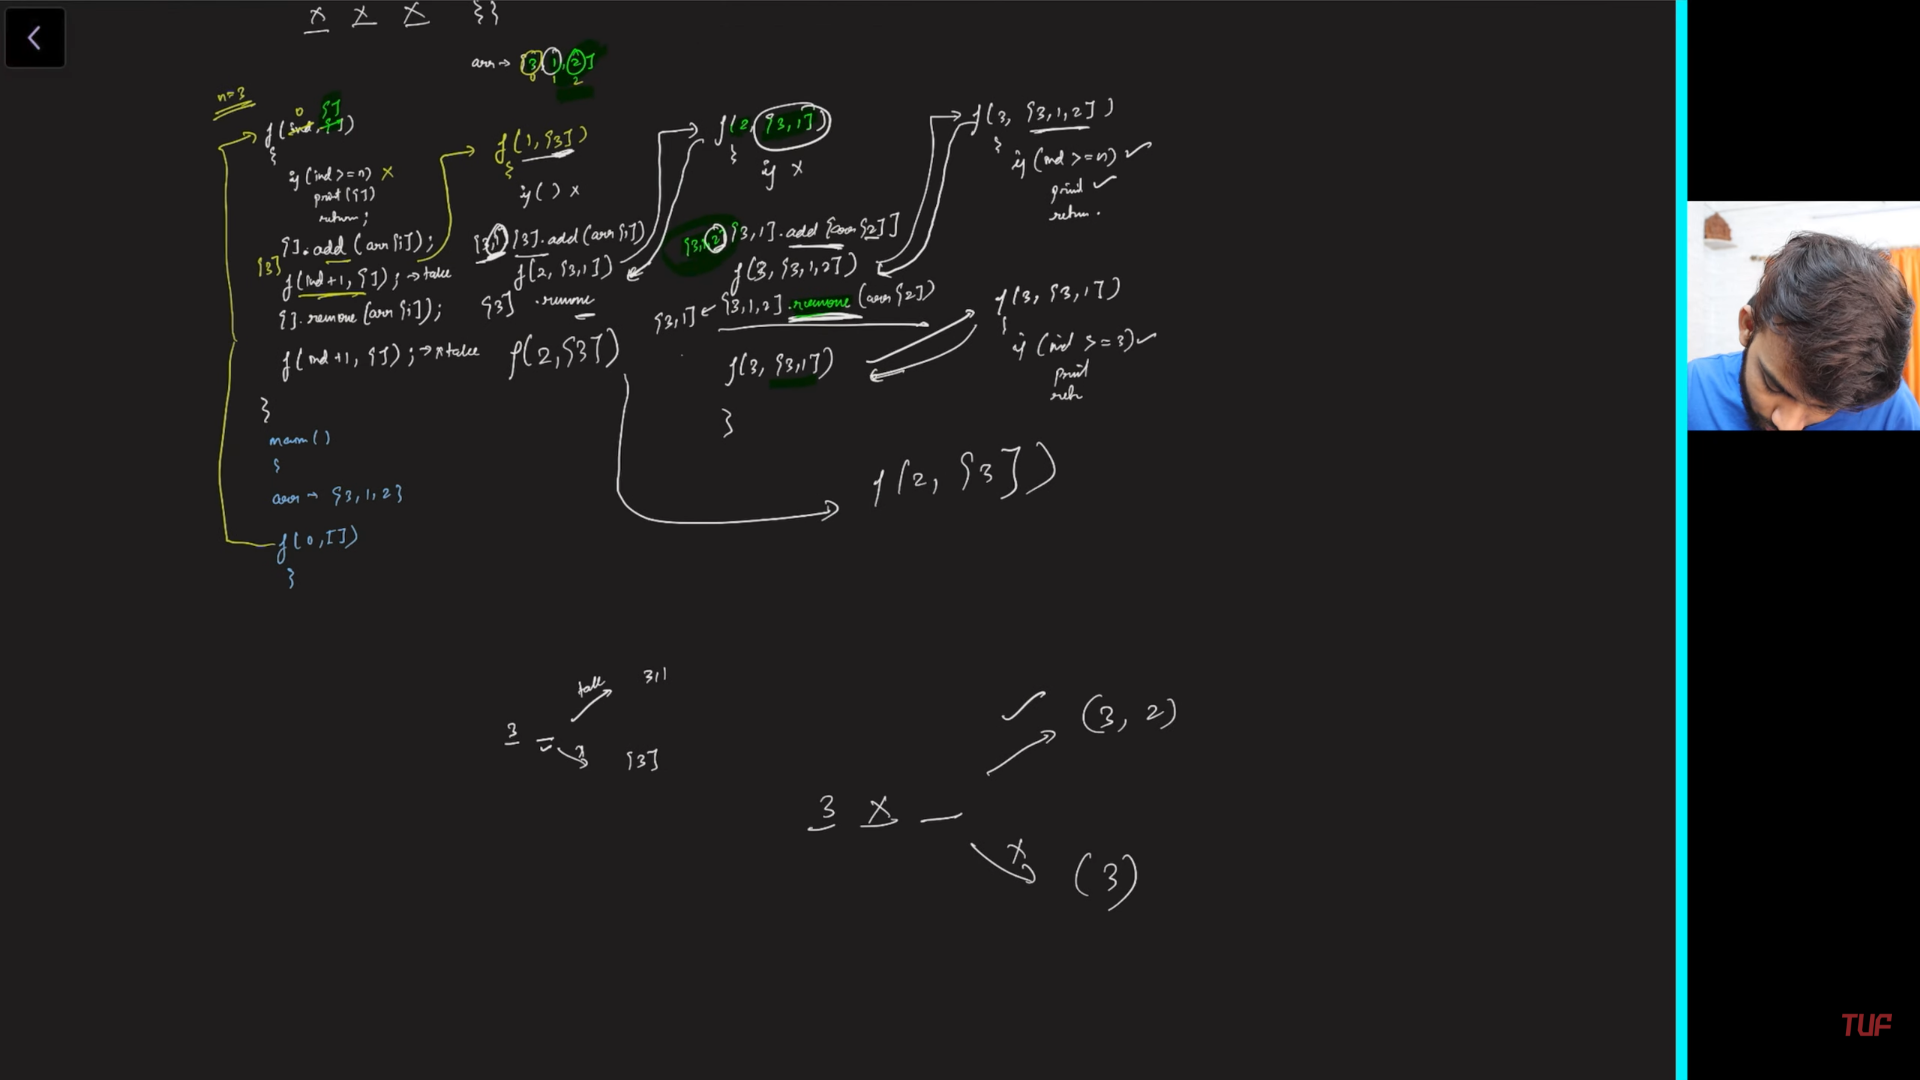 x x x {}
arr → [3, 1, 2]
0 1 2
n=3
0 []
f(ind, [])
{
if (ind >= n) x
print([])
return;
[].add(arr[i]);
[3]
f(ind+1, []); → take
[].remove(arr[i]);
f(ind+1, []); → x take
}
main()
{
arr → {3,1,2}
f(0, [])
}
f(1, [3])
{
if() x
[3,1] [3].add(arr[i])
f(2, [3,1])
[3] .remove
f(2, [3])
f(2, [3,1])
{
if x
[3,1,2] [3,1].add[arr[2]]
f(3, [3,1,2])
[3,1] ← [3,1,2].remove(arr[2])
f(3, [3,1])
}
f(3, [3,1,2])
{
if (ind >= n) ✓
print ✓
return.
f(3, [3,1])
{
if (ind >= 3) ✓
print
retn
f(2, [3])
take 3,1
3 _
x [3]
✓ (3, 2)
3 x _
x (3)
TUF